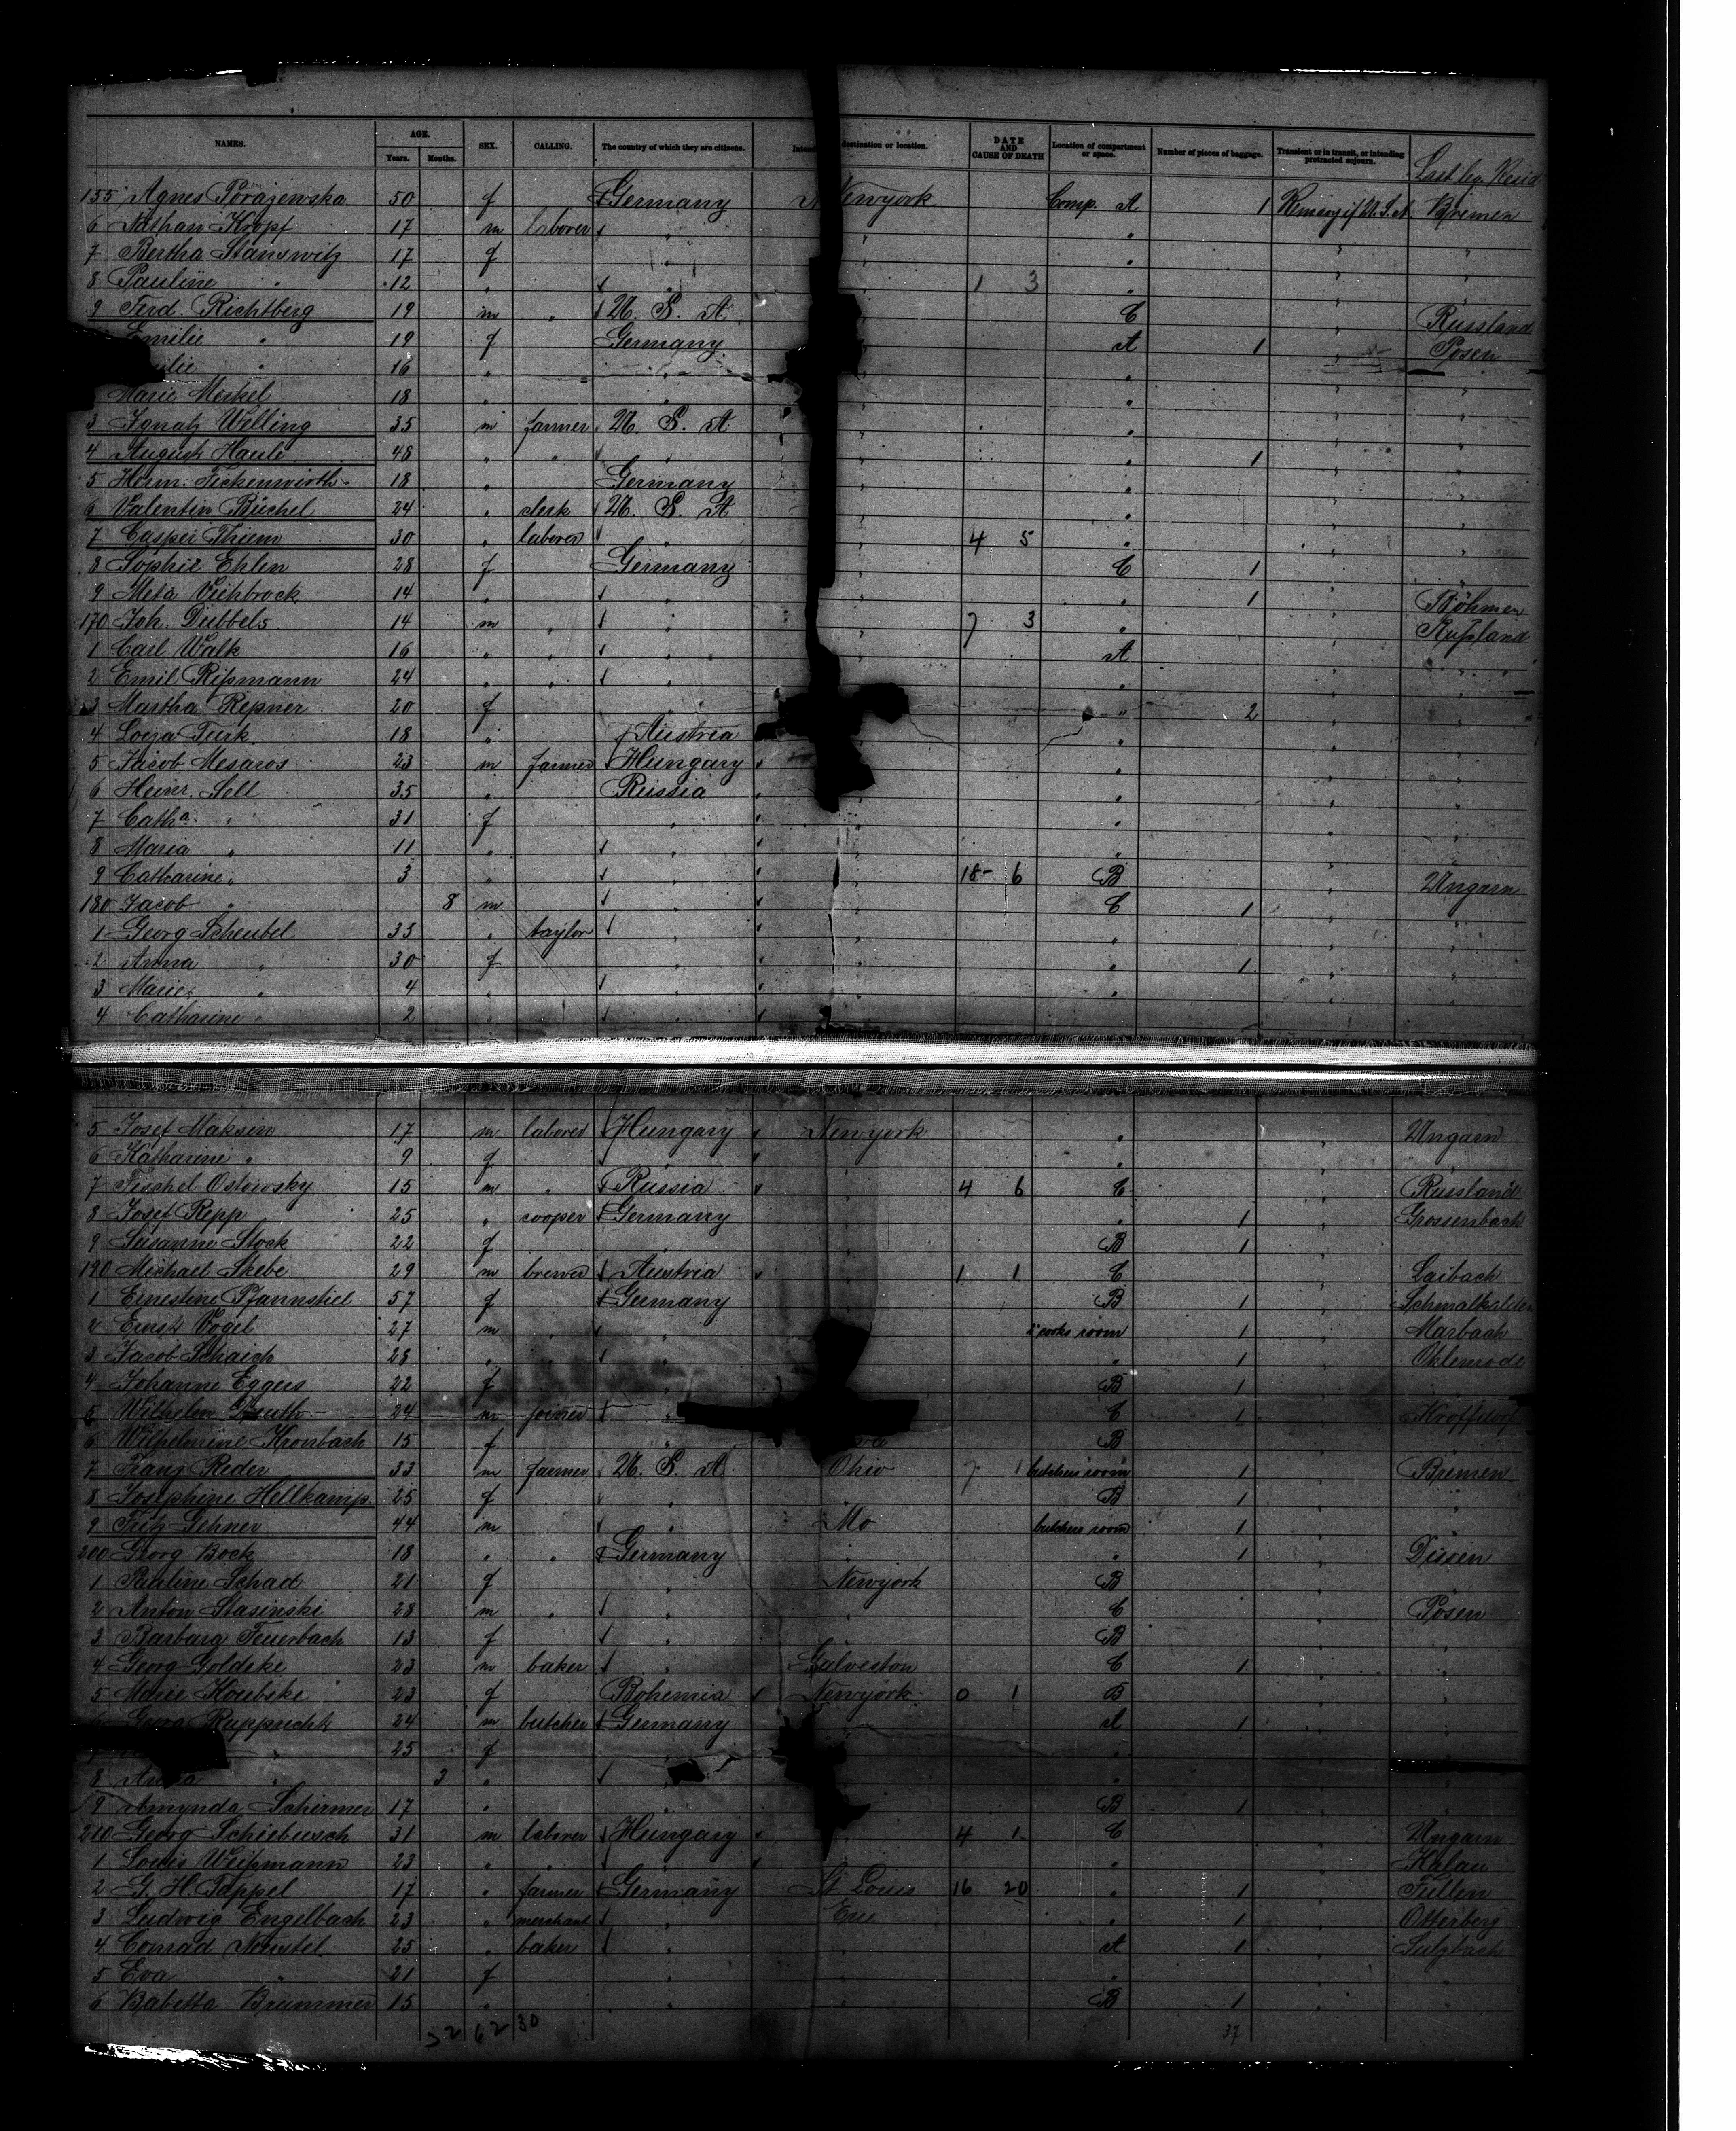 NAMES. AGE. SEX. CALLING. The country of which they are citizens. destination or location. DATE AND CAUSE OF DEATH Location of compartment or space. Number of pieces of baggage. Transient or in transit, or intending protracted sojourn. Last leg. Resid
Years. Months.
155 Agnes Porazewska 50 f Germany Newyork Comp. A 1 Bremen
6 Nathan Kropf 17 m laborer " " " " "
7 Bertha Stanswitz 17 f " " " " "
8 Pauline " 12 " " " 1 3 " " "
9 Ferd. Richtberg 19 m " U. S. A. " C " Russland
Emilie " 19 f Germany " A 1 " Posen
" 16 " " " " " "
Marie Merkel 18 " " " " " "
3 Ignatz Welling 35 m farmer U. S. A. " " " "
4 August Haule 48 " " " " " 1 " "
5 Herm. Fickenwirth 18 " Germany " " " "
6 Valentin Büchel 24 " clerk U. S. A " " " "
7 Casper Thiem 30 " laborer " " 4 5 " " "
8 Sophie Ehlen 28 f Germany " C 1 " "
9 Meta Viehbrock 14 " " " " 1 " Böhmen
170 Joh. Dübbels 14 m " " " 7 3 " " Rußland
1 Carl Walk 16 " " " " A " "
2 Emil Rißmann 24 " " " " " " "
3 Martha Repner 20 f " " " 2 " "
4 Loiza Turk 18 " Austria " " "
5 Jacob Mesaros 23 m farmer Hungary " " "
6 Heinr. Sell 35 " Russia " " " "
7 Catha " 31 f " " " " "
8 Maria " 11 " " " " " "
9 Catharine " 3 " " " 18 6 B " Ungarn
180 Jacob " 8 m " " C 1 " "
1 Georg Scheubel 35 " taylor " " " " "
2 Anna " 30 f " " " 1 " "
3 Marie " 4 " " " " " "
4 Catharine " 2 " " "
5 Josef Maksin 17 m laborer Hungary Newyork " " Ungarn
6 Katharine " 9 f " " "
7 Fischel Ostowsky 15 m " Russia " 4 6 C " Russland
8 Josef Repp 25 " cooper Germany " " 1 " Grossenbach
9 Susanne Stock 22 f " " B 1 "
190 Michael Skebe 29 m brewer Austria " 1 1 C " Laibach
1 Ernestine Pfannstiel 57 f Germany B 1 " Schmalkalden
2 Ernst Vogel 27 m " " cooks room 1 " Marbach
3 Jacob Schaich 28 " " " " 1 " Ohlenrode
4 Johanne Eggers 22 f B 1 "
5 Wilhelm 24 m joiner " C 1 " Kroffdorf
6 Wilhelmine Kronbach 15 f " B
7 Franz Reder 33 m farmer U. S. A. Ohio 7 1 butchers room 1 " Bremen
8 Josephine Hellkamp 25 f " " B 1 " "
9 Fritz Gehner 44 m " Mo butchers room 1 " "
200 Georg Bock 18 " " Germany " " 1 " Dissen
1 Pauline Schad 21 f " Newyork B "
2 Anton Stasinski 28 m " " " C " Posen
3 Barbara Feuerbach 13 f " " B " "
4 Georg Goldske 23 m baker " Galveston C 1 " "
5 Marie Koubske 23 f Bohemia Newyork 0 1 B "
Georg Rupprecht 24 m butcher Germany " A 1 " "
" 25 f " " "
8 Anna " 3 " " " "
9 Amynda Schirmer 17 " " B 1 " "
210 Georg Schiebusch 31 m laborer Hungary " 4 1 C " Ungarn
1 Louis Weißmann 23 " " " " "
2 G. H. Tappel 17 " farmer Germany St Louis 16 20 " 1 " Füllen
3 Ludwig Engelbach 23 " merchant " Erie " 1 " Otterberg
4 Conrad 25 " baker " " A 1 " Sulzbach
5 Eva " 21 f " " " " "
6 Babetta Brummer 15 " " " B 1 " "
22 62 30 37